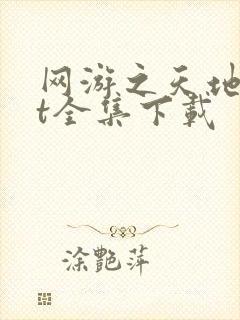 网游之天地
t全集下载
涂艷萍